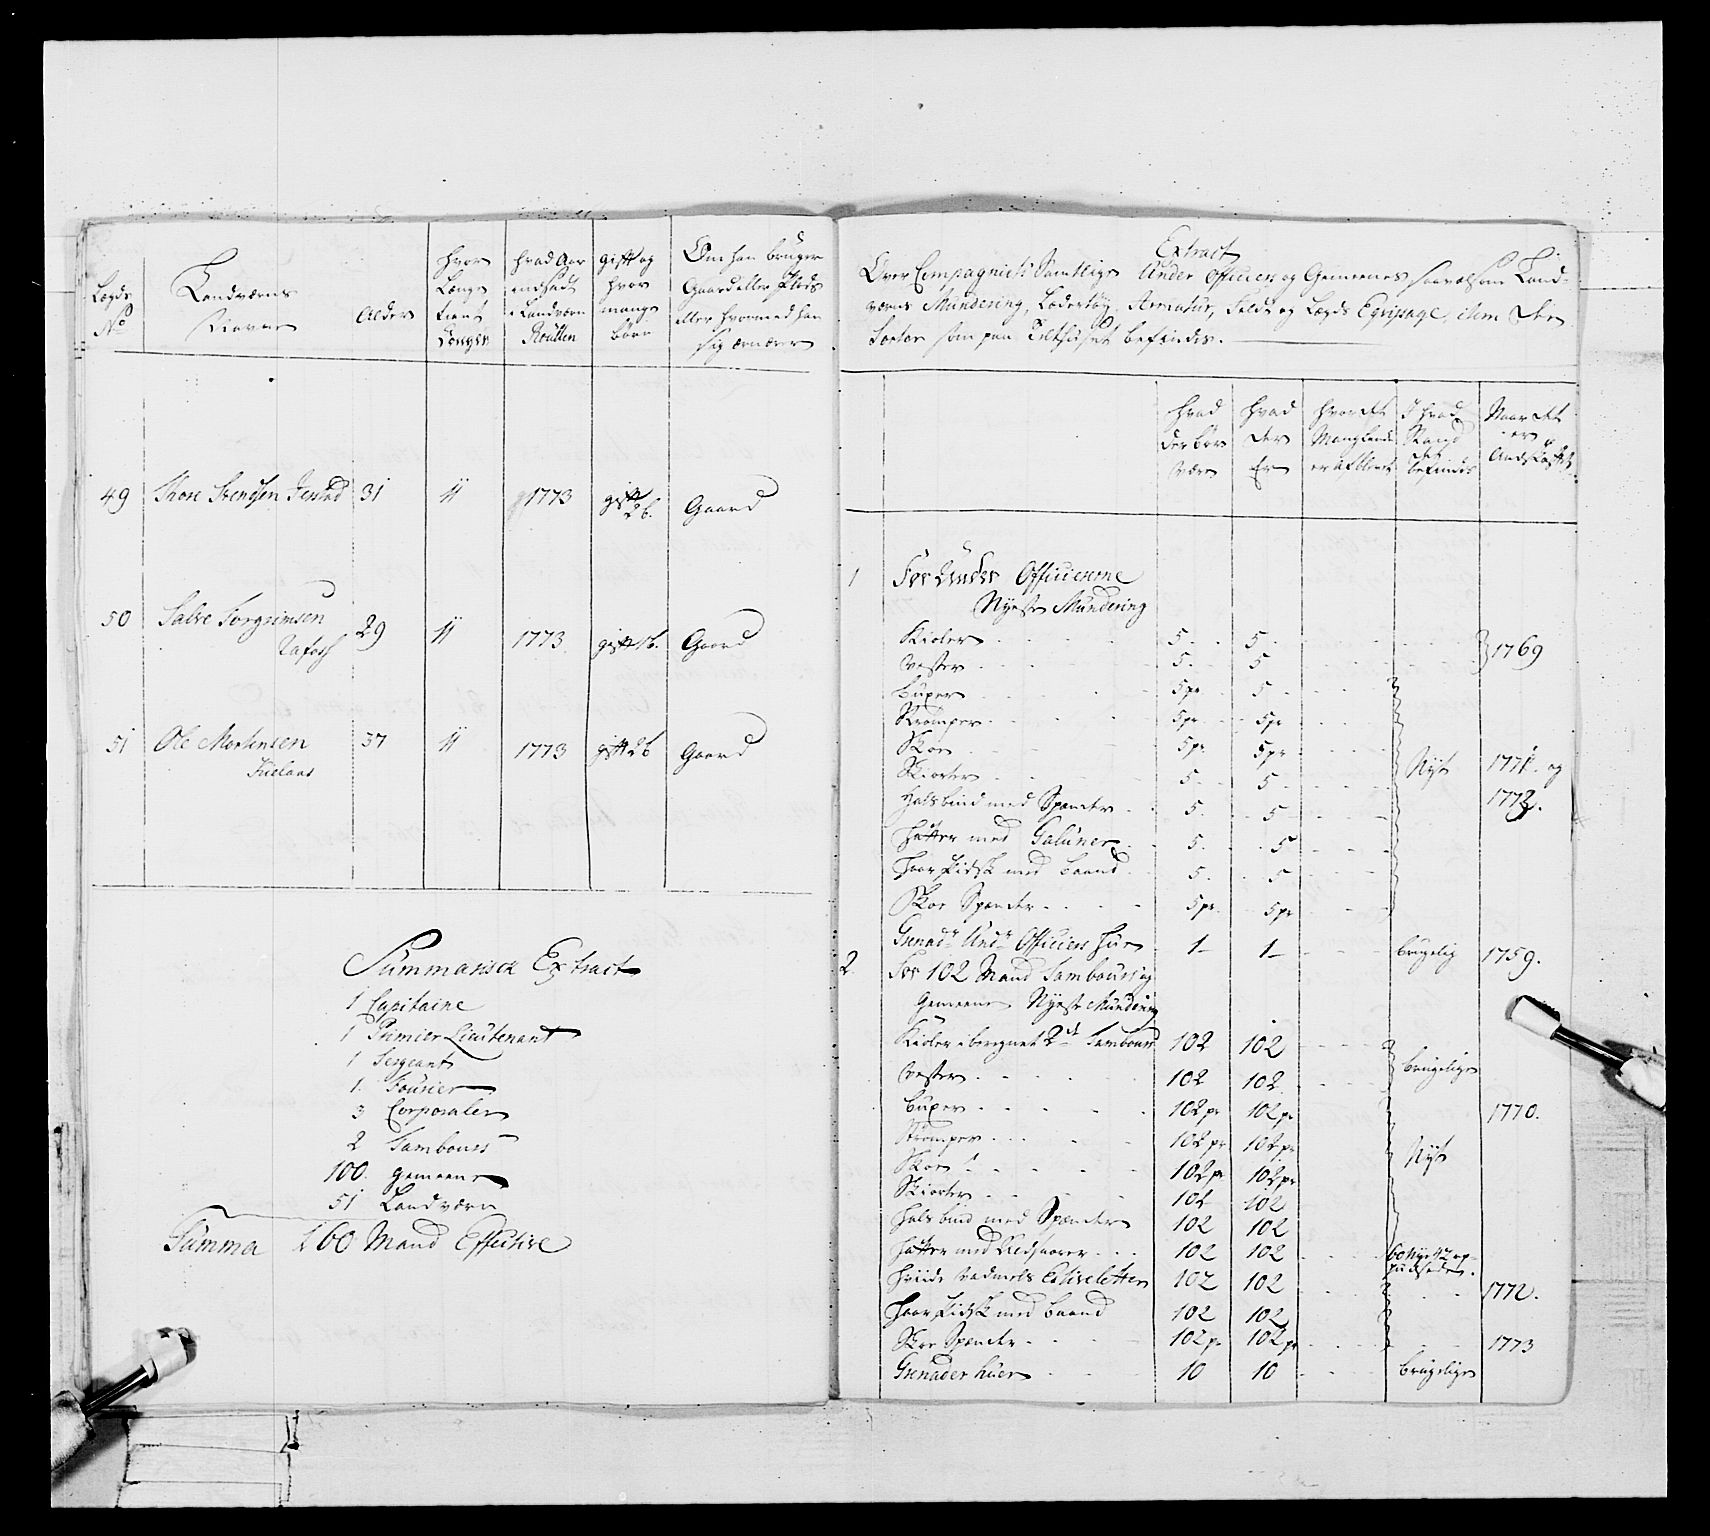 Lægds No
Landværns Navne
Alder
Hvor Længe tient Kongen
Hvad Aar indsadt i Landværn Roullen
gift og hvor mange børn
Om han bruger Gaard eller Plads eller hvormed han sig ernærer
49 Thore Svendsen 31 11 1773 gift 2b. Gaard
50 Salve Torgrimsen 29 11 1773 gift 1b. Gaard
51 Ole Mortensen 37 11 1773 gift 2b Gaard
Summarisk Extract
1 Capitaine
1 Primier Lieutenant
1 Sergeant
1. Fourier
3 Corporaler
2 Tambours
100. gemeene
51 Landværn
Summa 160 Mand Effective
Extract
Over Compagniets Samtlige Under Officiers og Gemeenes saavelsom Land-
værns Mundering, Lædertøy, Armatur, Feldt og Lægds Eqvipage, item Den
Sorter som paa Telthuset befindes.
Hvad der bør være
Hvad der Er
Hvor det Manglende er afbleven
I hvad Stand det befindes
Naar det er Andskaffet
1 For Under Officiererne
Nyeste Mundering
Kioler 5 5 1769
Vester 5 5
Buxer 5pr 5
Strømper 5pr 5pr
Skoe 5pr 5pr Nye 1771. og
Skiorter 5 5 1772.
Halsbind med Spænder 5 5
Hatter med Galuner 5 5
Haar Pidsk med baand 5 5
Skoe Spænder 5pr 5pr
Grenadr Undr Officiers Hue 1 1 brugelig 1759.
2 For 102 Mand Tambours og
Gemeene Nyeste Mundering
Kioler iberegnet 2de Tambours 102 102 brugelige
Vester 102 102
Buxer 102pr 102pr 1770.
Strømper 102pr 102pr Nye
Skoe 102pr 102pr
Skiorter 102 102
Halsbind med Spænder 102 102
Hatter med 102 102 60 Nye 42
Hviide Vadmels 102 102 1772.
Haar Pidsk med baand 102 102
Skoe Spænder 102pr 102pr 1773
Grenader huer 10 10 brugelige